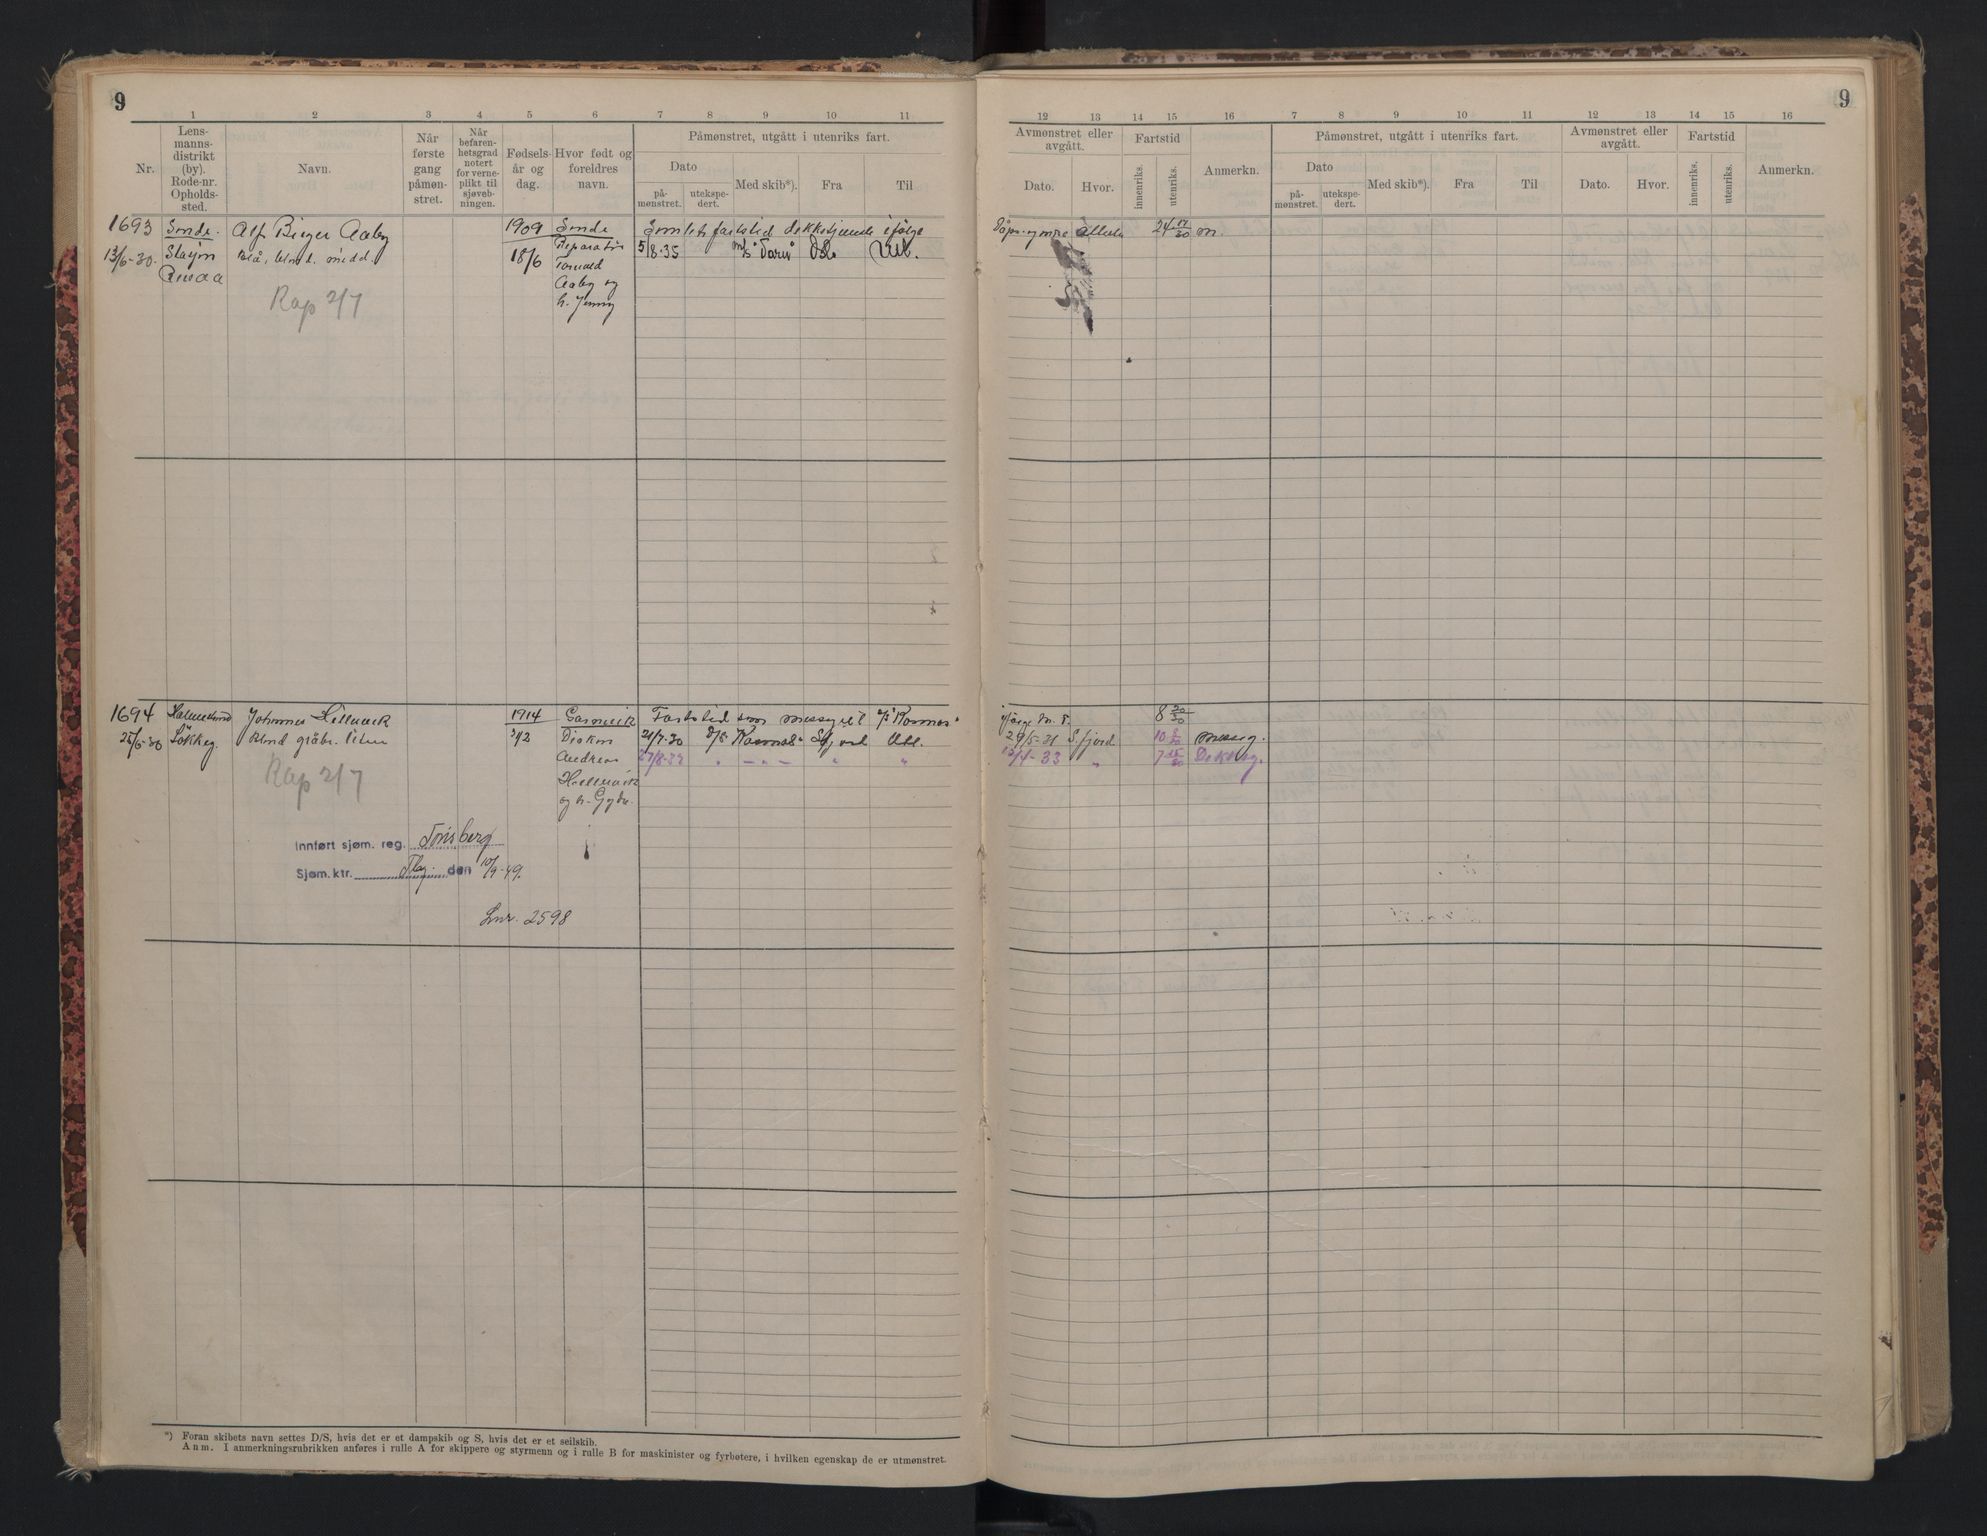 9
1 2 3 4 5 6 7 8 9 10 11
Nr.
Lens-
manns-
distrikt
(by).
Rode-nr.
Opholds-
sted.
Navn.
Når
første
gang
påmøn-
stret.
Når
befaren-
hetsgrad
notert
for verne-
plikt til
sjøveb-
ningen.
Fødsels-
år og
dag.
Hvor født og
foreldres
navn.
Påmønstret, utgått i utenriks fart.
Dato
på-
mønstret.
utekspe-
dert.
Med skib*).
Fra
Til
1693 Sande. Alf Birger Aaby 1909 Sande
13/6-30. blå, blnd. midd. 18/6
Reparatør
Aaby og
h. Jenny
5/8-35 m/s Oslo Utl.
Rap 2/7
1694 Johannes 1914
25/6-30 blnd gråbr. liten 3/12 Diakon 21/7-30 d/s "Kosmos" Sfjord Utl.
Andreas 27/8-32 " - " - " "
og h. Gyda.
Fartstid som messgutt "Kosmos"
Rap 2/7
Innført sjøm. reg. Tønsberg
Sjøm. ktr. den 10/9-49.
Lnr. 2598
*) Foran skibets navn settes D/S, hvis det er et dampskib og S, hvis det er et seilskib.
Anm. I anmerkningsrubrikken anføres i rulle A for skippere og styrmenn og i rulle B for maskinister og fyrbøtere, i hvilken egenskap de er utmønstret.
9
12 13 14 15 16 7 8 9 10 11 12 13 14 15 16
Avmønstret eller
avgått.
Dato.
Hvor.
Fartstid
innenriks.
utenriks.
Anmerkn.
Påmønstret, utgått i utenriks fart.
Dato
på-
mønstret.
utekspe-
dert.
Med skib*).
Fra
Til
Avmønstret eller
avgått.
Dato.
Hvor.
Fartstid
innenriks.
utenriks.
Anmerkn.
24 17/30 m.
8 20/30
29/5-31 S.fjord 10 8/30 messg.
12/4-33 " 7 15/30